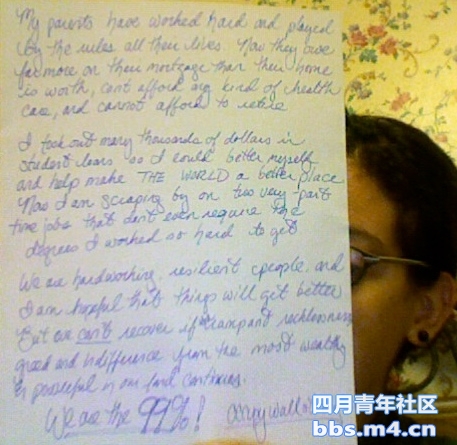 My parents have worked hard and played
by the rules all their lives. Now they owe
far more on their mortgage than their home
is worth, can't afford any kind of health
care, and cannot afford to retire
I took out many thousands of dollars in
student loans so I could better myself
and help make THE WORLD a better place
Now I am scraping by on two very part
time jobs that don't even require the
degrees I worked so hard to get
We are hardworking, resilient people, and
I am hopeful that things will get better
But we can't recover if rampant recklessness
greed and indifference from the most wealthy
& powerful in our land continues.
We are the 99%! occupy wall
四月青年社区
bbs.m4.cn